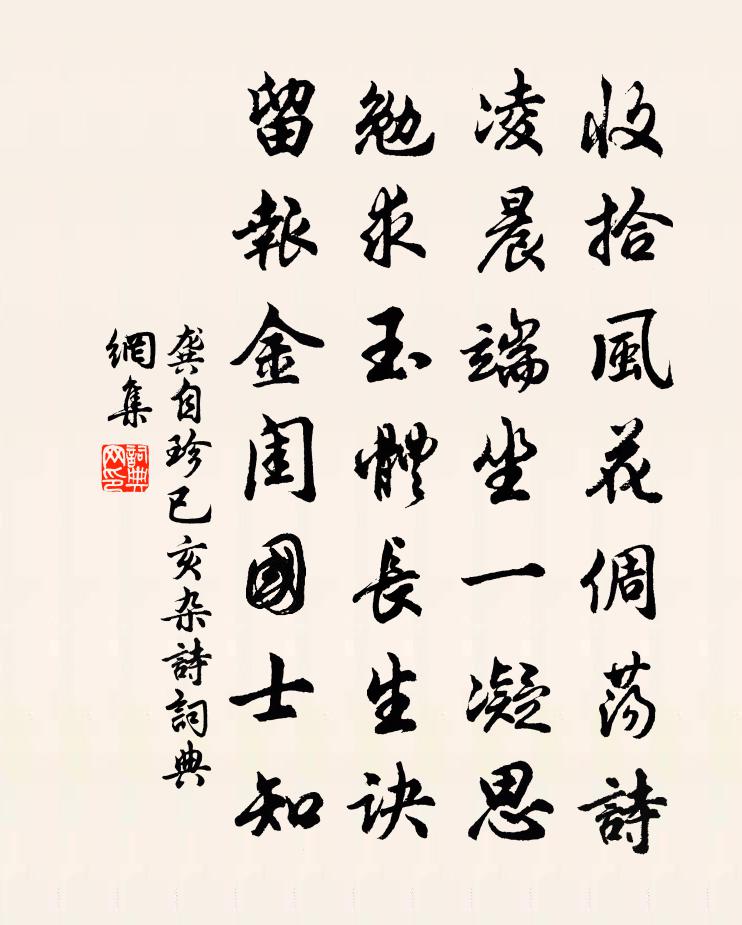 收拾風花倜蕩詩
凌晨端坐一凝思
勉求玉體長生訣
留報金閨國士知
龔自珍已亥杂詩詞典
網集
詞典
网印